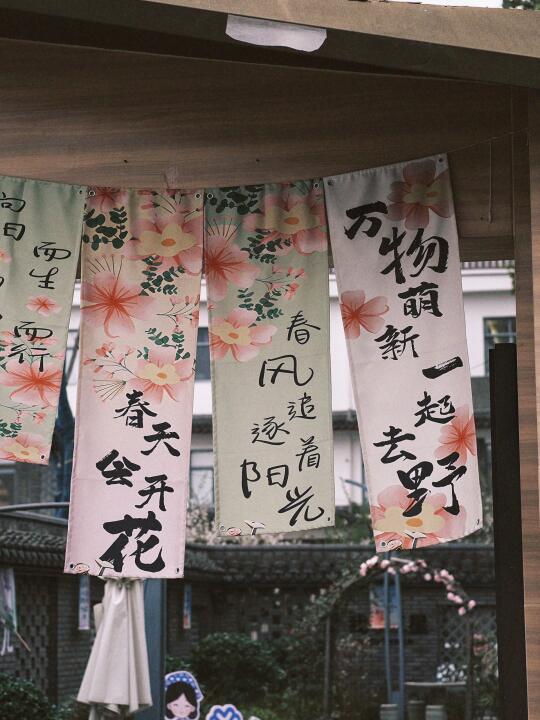 向日
而生
而行
春天
公开
花
春风
追逐着
阳光
万物
萌新
一起
去野